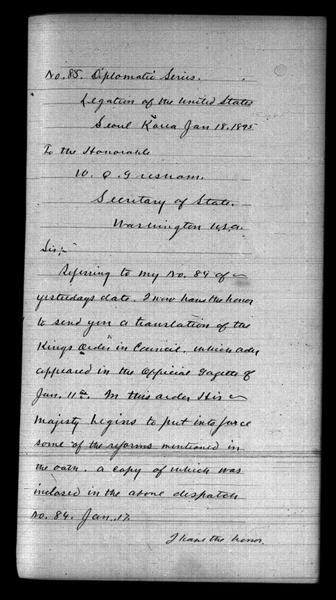 No. 85. Diplomatic Series.
Legation of the United States
Seoul Korea Jan 18, 1895
To the Honorable
W. Q. Gresham.
Secretary of State.
Washington U.S.A.
Sir;-
Referring to my No. 84 of
yesterdays date. I now have the honor
to send you a translation of the
Kings "Order in Council, which order
appeared in the Official Gazette of
Jan. 11th. In this order His
Majesty begins to put into force
some of the reforms mentioned in
the oath. a copy of which was
inclosed in the above dispatch
No. 84. Jan. 17.
I have the honor